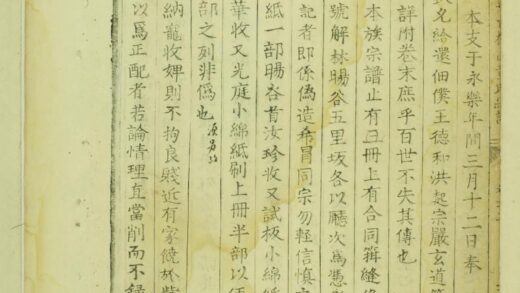 本支于永樂年間三月十二日奉
兄給還佃僕王德和洪起宗嚴玄道等
詳附卷末庶乎百世不失其傳也
本族宗譜止有丑冊上有合同篈縫
號解林暘谷五里坂各以廳次爲憑
記者即係偽造希冒同宗勿輕信慎
紙一部暘谷首汝珍收又試板小綿紙
華收又光庭小綿紙刷上冊半部以
部之列非僞也
納寵收婢則不拘良賤近有家饒於
以爲正配者若論情理直當削而不錄